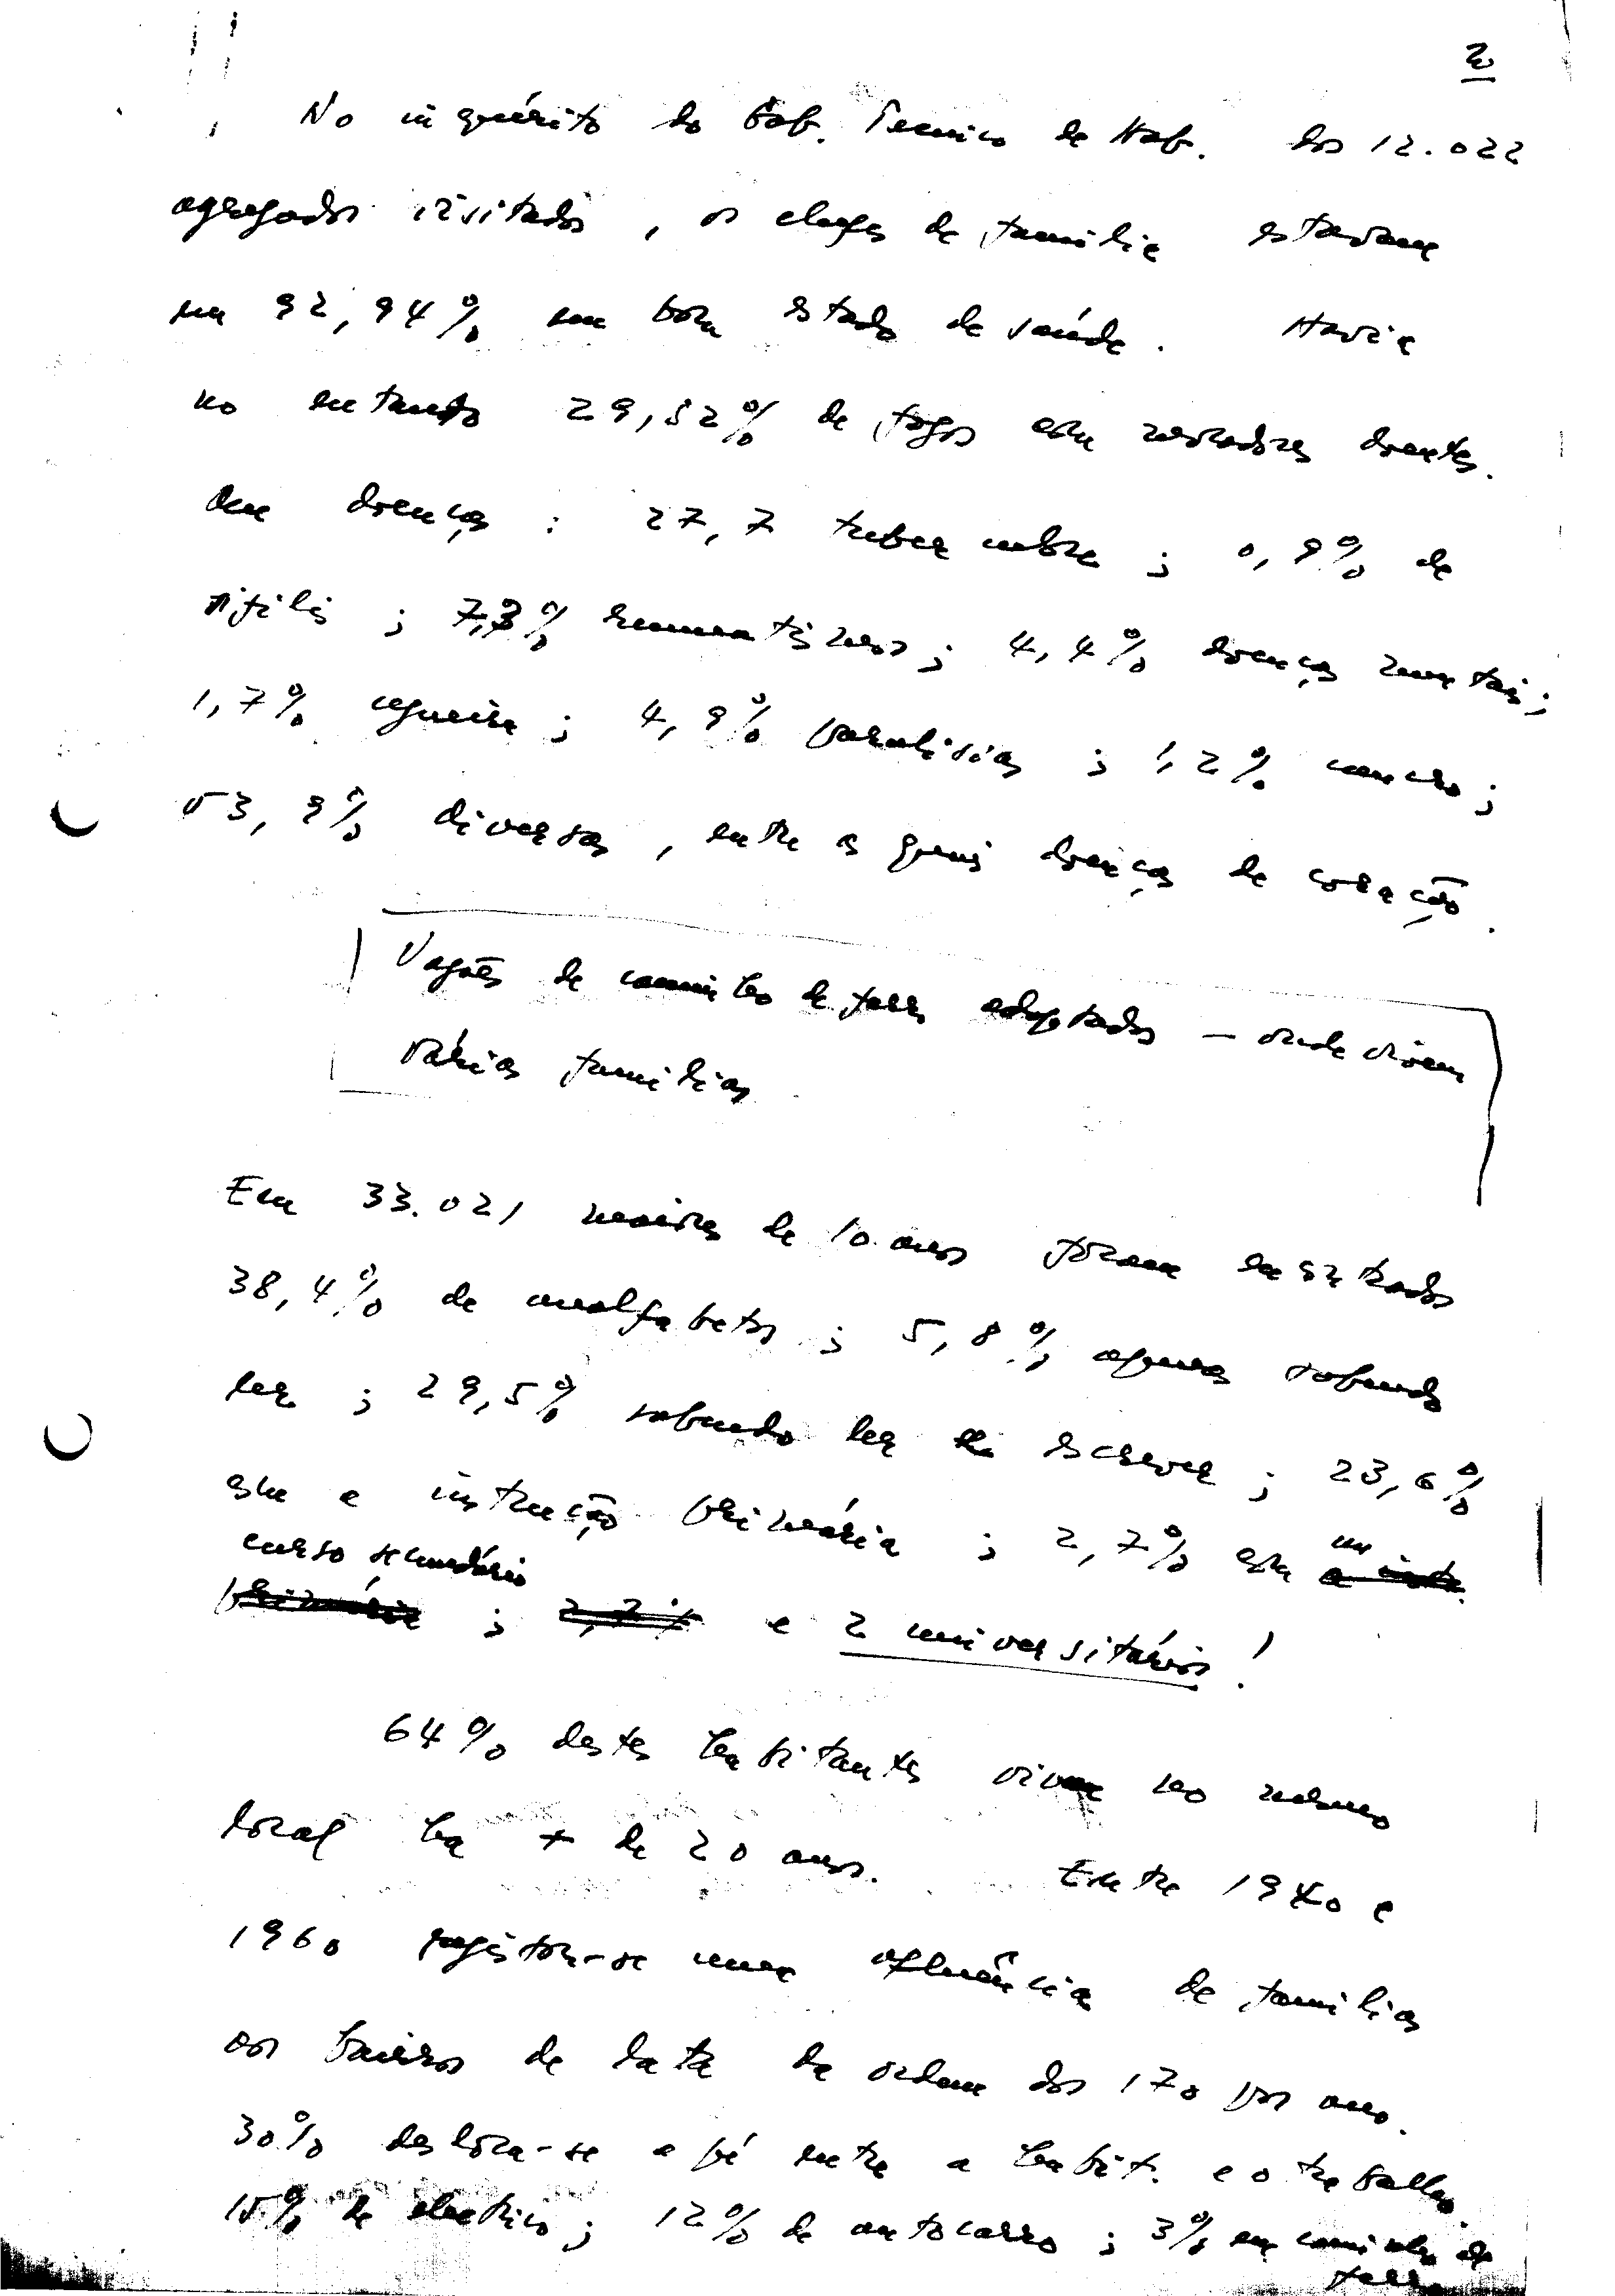 2
No inquérito do Gab. Tecnico de Hab. dos 12.022
agregados visitados, os chefes de familia estavam
em 92,94% em bom estado de saúde. Havia
no entanto 29,52% de fogos com moradores doentes.
Em doenças: 27,7 tuberculose; 0,9% de
sifilis; 7,3% reumatismos; 4,4% doenças mentais;
1,7% cegueira; 4,9% paralisias; 1,2% cancro;
53,9% diversas, entre as quais doenças de coração.
Vagões de caminho de ferro adaptados — onde vivem
várias familias
Em 33.021 maiores de 10 anos foram encontrados
38,4% de analfabetos; 5,8% apenas sabendo
ler; 29,5% sabendo ler e escrever; 23,6%
com a instrução primária; 2,7% com um
curso secundário
; e 2 universitários!
64% destes habitantes vivem no mesmo
local ha + de 20 anos. Entre 1940 e
1960 registou-se uma afluência de familias
aos bairros de lata da ordem dos 170 por ano.
30% desloca-se a pé entre a habit. e o trabalho.
15% de electrico; 12% de autocarro; 3% em caminho de
ferro